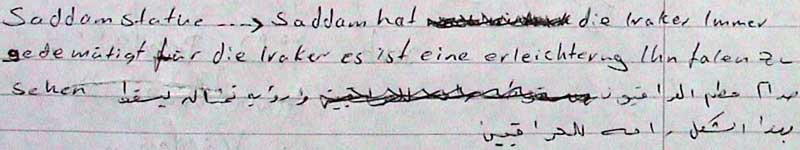 Saddamstatue ---> Saddam hat die Iraker Immer
gedemütigt für die Iraker es ist eine erleichterng Ihn falen zu
sehen صدام حطم العراقيون ورؤيه تمثاله يسقط
بهذا الشكل راحه للعراقيين